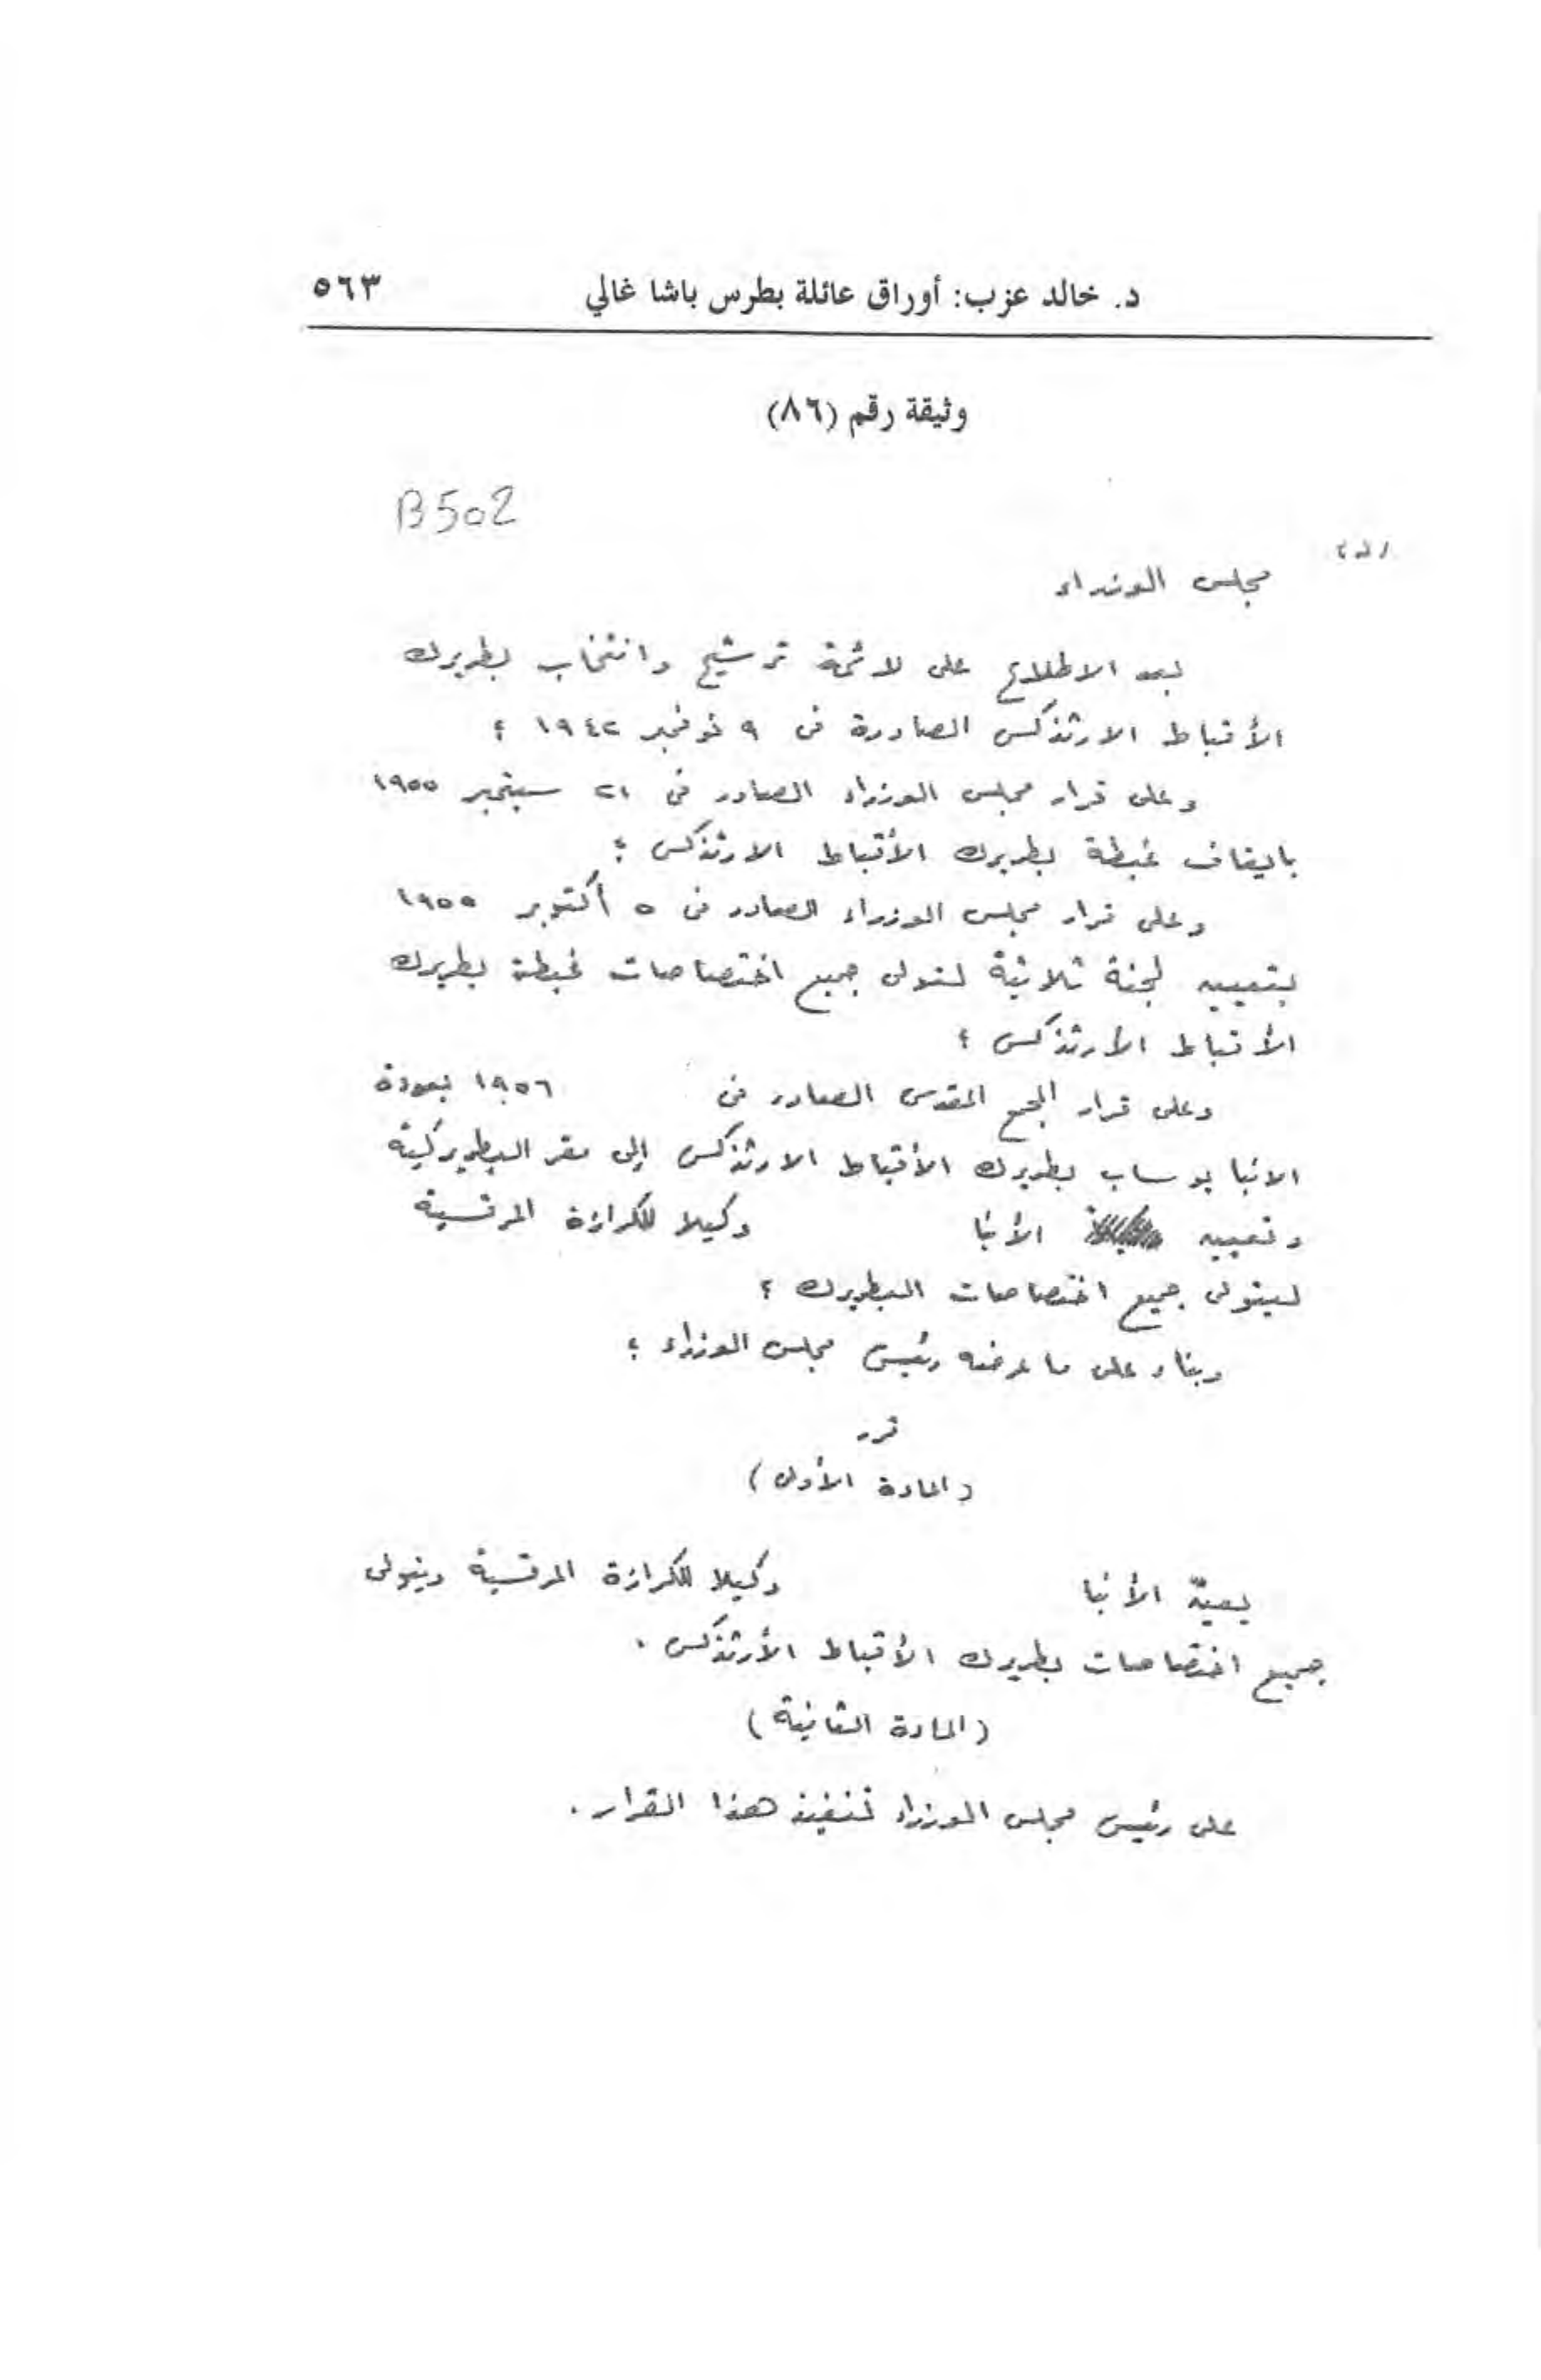 د. خالد عزب: أوراق عائلة بطرس باشا غالي ٥٦٣
وثيقة رقم (٨٦)
B502
مجلس الوزراء
بعد الاطلاع على لائحة ترشيح وانتخاب بطريرك
الأقباط الارثذكس الصادرة فى ٩ نوفمبر ١٩٤٢ ؛
وعلى قرار مجلس الوزراء الصادر فى ٢١ سبتمبر ١٩٥٥
بايقاف غبطة بطريرك الأقباط الارثذكس ؛
وعلى قرار مجلس الوزراء الصادر فى ٥ أكتوبر ١٩٥٥
بتعيين لجنة ثلاثية لتولى جميع اختصاصات غبطة بطريرك
الأقباط الأرثذكس ؛
وعلى قرار المجمع المقدس الصادر فى ١٩٥٦ بعودة
الانبا يوساب بطريرك الأقباط الارثذكس إلى مقر البطريركية
وتعيين الأنبا وكيلا للكرازة المرقسية
ليتولى جميع اختصاصات البطريرك ؛
وبناء على ما عرضه رئيس مجلس الوزراء ؛
قرر
(المادة الأولى)
يعيّن الأنبا وكيلا للكرازة المرقسية ويتولى
جميع اختصاصات بطريرك الأقباط الأرثذكس .
(المادة الثانية)
على رئيس مجلس الوزراء تنفيذ هذا القرار .